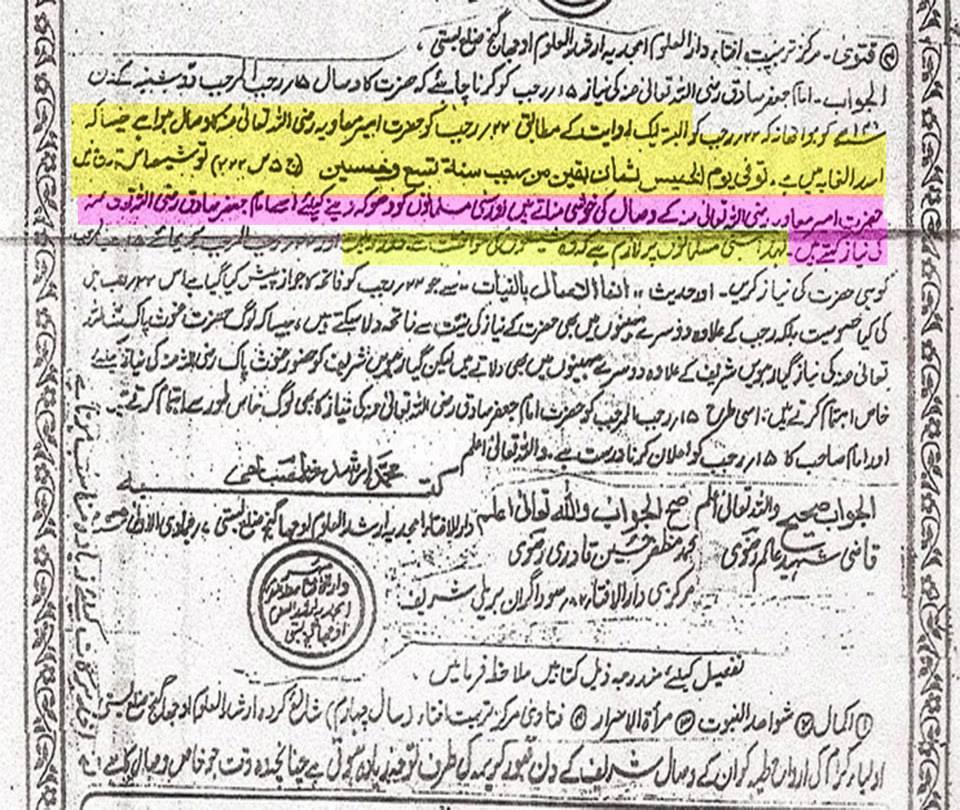 ④ فتویٰ۔ مرکز تربیت افتاء دارالعلوم امجدیہ ارشد العلوم اوجھا گنج ضلع بستی
الجواب۔ امام جعفر صادق رضی اللہ تعالیٰ عنہ کی نیاز ۱۵؍ رجب کو کرنا چاہئے کہ حضرت کا وصال ۱۵؍ رجب المرجب دوشنبہ کے دن
کو ہوا تھا نہ کہ ۲۲؍ رجب کو البتہ ایک روایت کے مطابق ۲۲؍ رجب کو حضرت امیر معاویہ رضی اللہ تعالیٰ عنہ کا وصال ہوا ہے جیسا کہ
اسد الغابہ میں ہے۔ توفی یوم الخمیس لثمان بقین من رجب سنة تسع وخمسین (ج ۵ ص ۲۲۲) تو شیعہ اس تاریخ میں
حضرت امیر معاویہ رضی اللہ تعالیٰ عنہ کے وصال کی خوشی مناتے ہیں اور سنی مسلمانوں کو دھوکہ دینے کیلئے اسے امام جعفر صادق رضی اللہ تعالیٰ عنہ
کی نیاز کہتے ہیں۔ لہذا سنی مسلمانوں پر لازم ہے کہ وہ شیعوں کی موافقت سے دور رہیں اور ۲۲؍ رجب کے بجائے ۱۵؍ رجب
کو ہی حضرت کی نیاز کریں۔ اور حدیث "انما الاعمال بالنیات" سے جو ۲۲؍ رجب کو فاتحہ کا جواز پیش کیا گیا ہے اس ۲۲؍ رجب میں
کی کیا خصوصیت بلکہ رجب کے علاوہ دوسرے مہینوں میں بھی حضرت کے نیاز کی نیت سے فاتحہ دلا سکتے ہیں، جیسا کہ لوگ حضرت غوث پاک رضی اللہ
تعالیٰ عنہ کی نیاز گیارہویں شریف کے علاوہ دوسرے مہینوں میں بھی دلاتے ہیں لیکن گیارہویں شریف کو حضور غوث پاک رضی اللہ عنہ کی نیاز کیلئے
خاص اہتمام کرتے ہیں، اسی طرح ۱۵؍ رجب المرجب کو حضرت امام جعفر صادق رضی اللہ تعالیٰ عنہ کی نیاز کا بھی لوگ خاص طور سے اہتمام کرتے ہیں
اور امام صاحب کا ۱۵؍ رجب کو اعلان کرنا درست ہے۔ واللہ تعالیٰ اعلم
کتبہ محمد ارشد رضا مصباحی
الجواب صحیح واللہ تعالیٰ اعلم صح الجواب واللہ تعالیٰ اعلم دارالافتاء امجدیہ ارشد العلوم اوجھا گنج ضلع بستی
قاضی شہید عالم رضوی محمد مظفر حسین قادری رضوی
مرکزی دارالافتاء ۸۲ سوداگران بریلی شریف
تفصیل کیلئے مندرجہ ذیل کتابیں ملاحظہ فرمائیں
① اکمال ② شواہد النبوت ③ مرأة الاسرار ④ فتاویٰ مرکز تربیت افتاء (سال چہارم) شائع کردہ ارشد العلوم اوجھا گنج ضلع بستی
اولیاء کرام کی ارواح طیبہ کو ان کے وصال شریف کے دن قبور کریمہ کی طرف توجہ زیادہ ہوتی ہے چنانچہ وہ وقت جو خاص وصال کا ہے